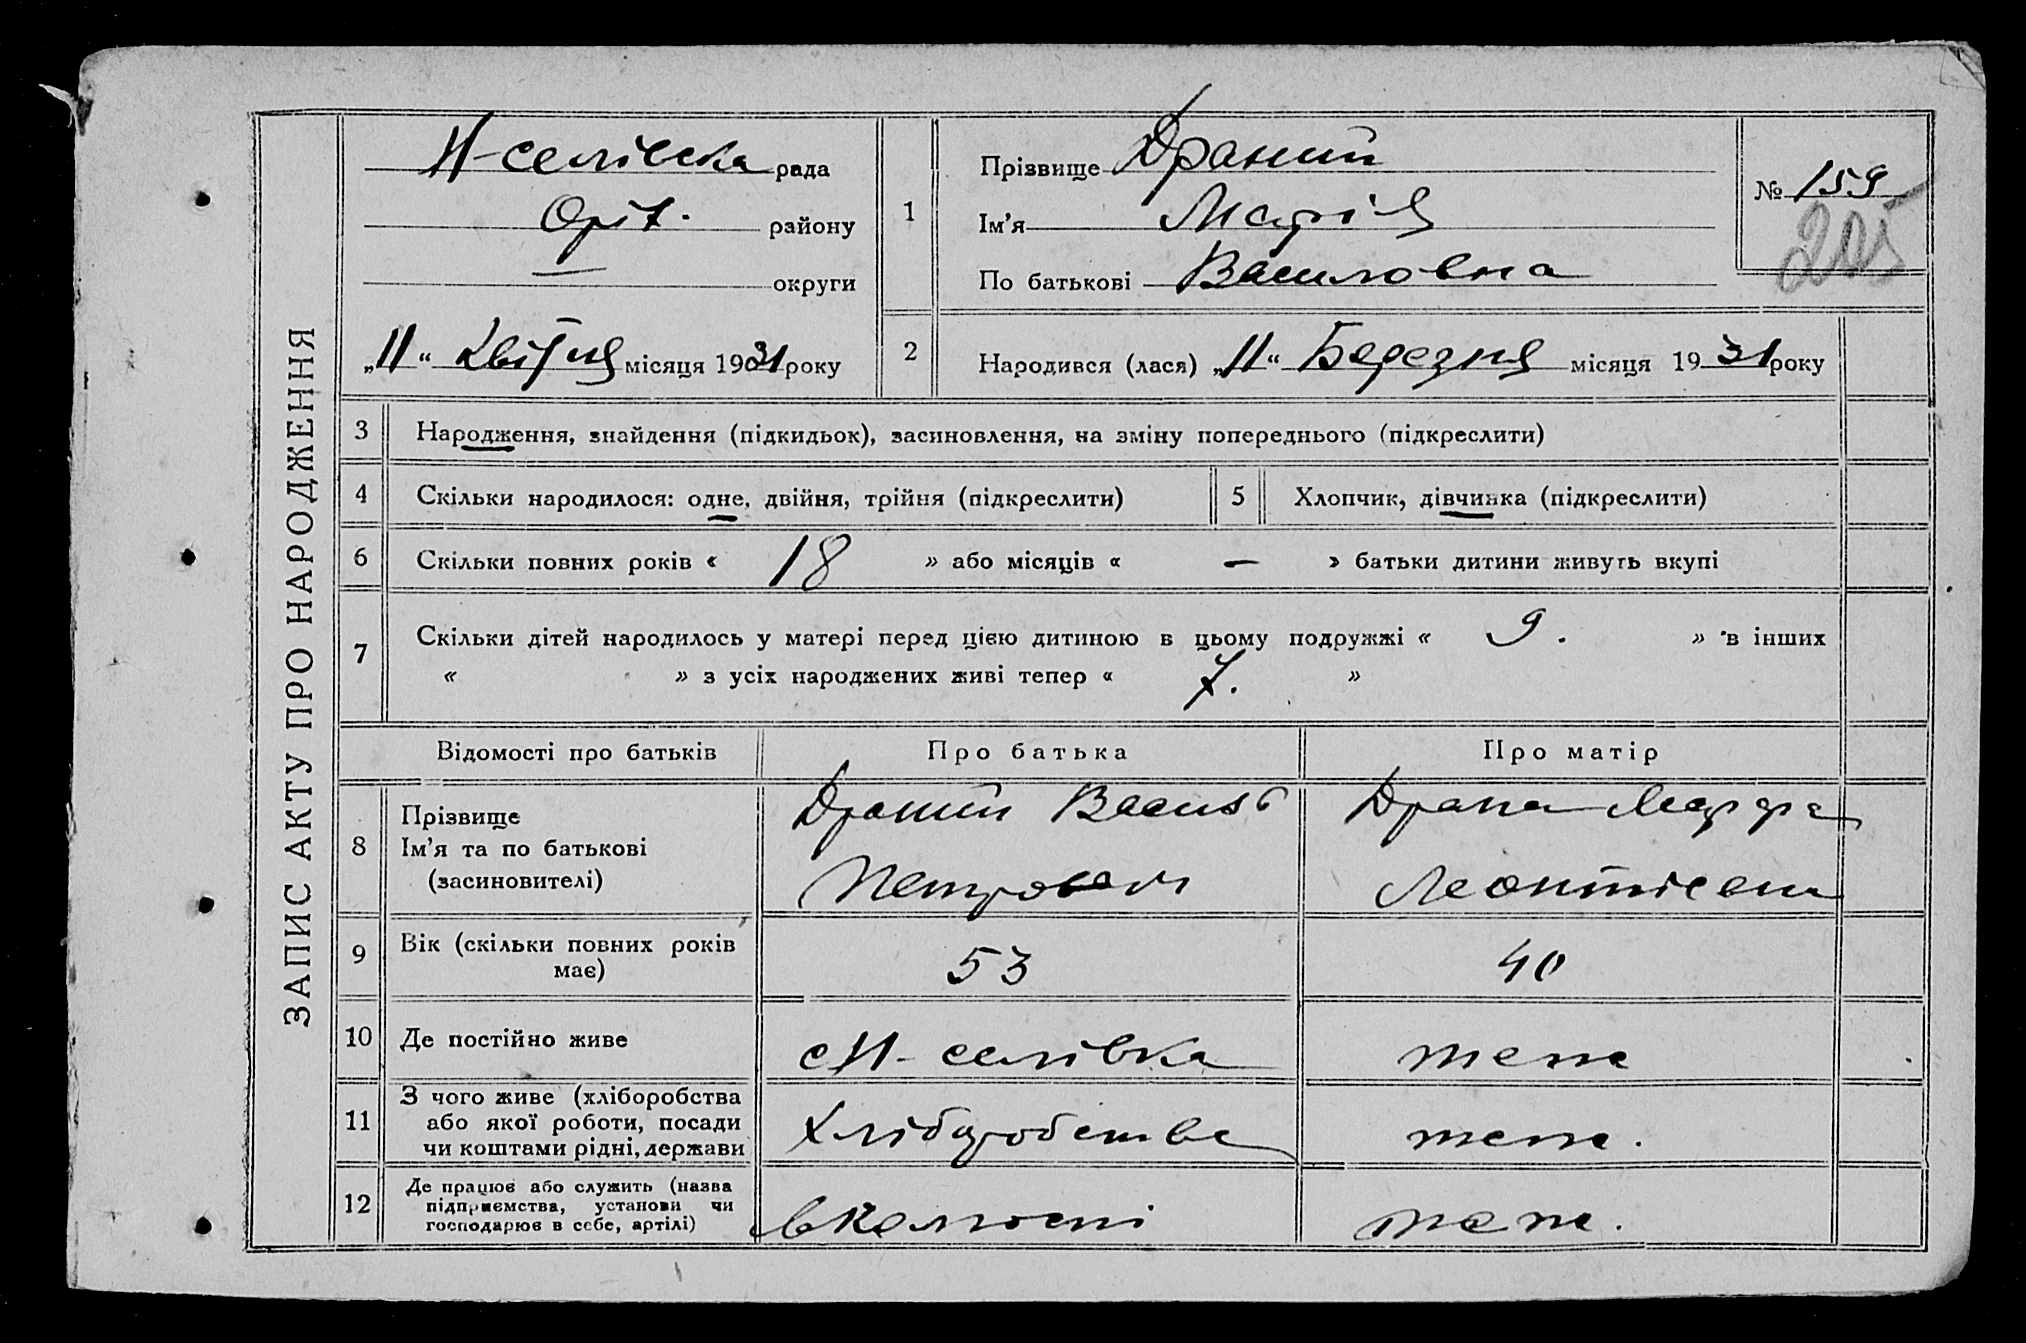 ЗАПИС АКТУ ПРО НАРОДЖЕННЯ
Н-селівска рада
Оріх. району
— округи
„11“ Квітня місяця 1931 року
1
Прізвище Драний
Ім’я Марія
По батькові Василовна
№ 159
205
2
Народився (лася) „11“ Березня місяця 1931 року
3 Народження, знайдення (підкидьок), засиновлення, на зміну попереднього (підкреслити)
4 Скільки народилося: одне, двійня, трійня (підкреслити) 5 Хлопчик, дівчинка (підкреслити)
6 Скільки повних років « 18 » або місяців « — » батьки дитини живуть вкупі
7 Скільки дітей народилось у матері перед цією дитиною в цьому подружжі « 9. » в інших
« » з усіх народжених живі тепер « 7. »
Відомості про батьків Про батька Про матір
8 Прізвище
Ім’я та по батькові
(засиновителі)
Драний Василь
Петрович
Драна Марфа
Леонтієвна
9 Вік (скільки повних років
має)
53 40
10 Де постійно живе с Н-селівка теж
11 З чого живе (хліборобства
або якої роботи, посади
чи коштами рідні, держави
Хліборобства теж.
12 Де працює або служить (назва
підприємства, установи чи
господарює в себе, артілі)
вколгоспі теж.